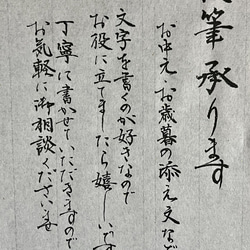 筆承ります
お中元・お歳暮の添え文など
文字を書くのが好きなので
お役に立てましたら嬉しいです
丁寧に書かせていただきますので
お気軽に御相談くださいませ